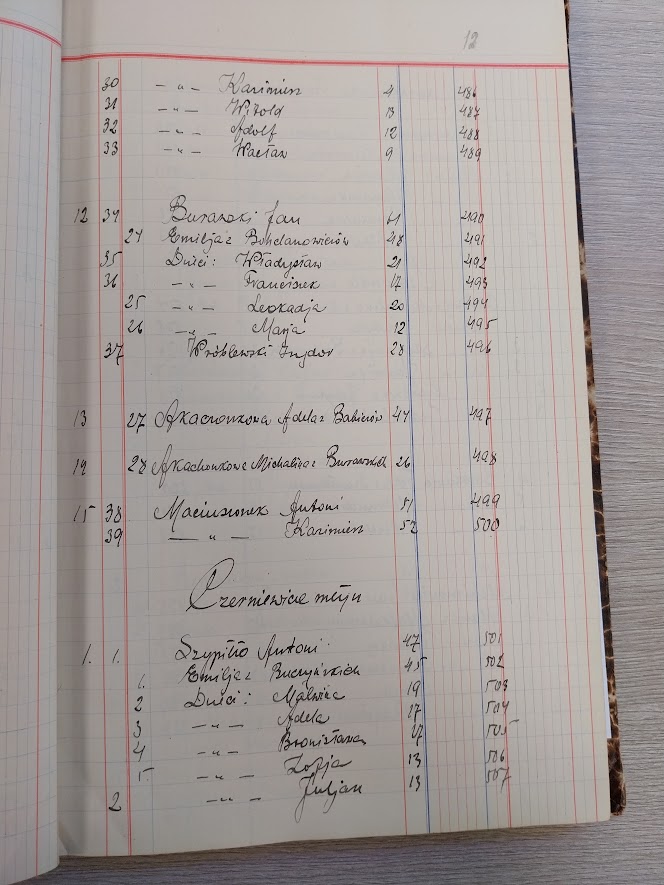 12
30 – „ – Kazimierz 4 486
31 – „ – Witold 13 487
32 – „ – Adolf 12 488
33 – „ – Wacław 9 489
12 34 Burawski Jan 61 490
24 Emilja z Bohdanowiczów 48 491
35 Dzieci: Władysław 21 492
36 – „ – Franciszek 17 493
25 – „ – Leokadja 20 494
26 – „ – Marja 12 495
37 Wróblewski 28 496
13 27 Adela z Babiczów 47 497
14 28 Michalina z Burawskich 26 498
15 38 Maciusionek Antoni 51 499
39 — „ — Kazimierz 52 500
Czerniewicze młyn
1. 1. Szypiłło Antoni 47 501
1. Emilja z Buczyńskich 45 502
2 Dzieci: Malwina 19 503
3 – „ – Adela 17 504
4 – „ – Bronisława 17 505
5. – „ – Zofja 13 506
2 – „ – Juljan 13 507